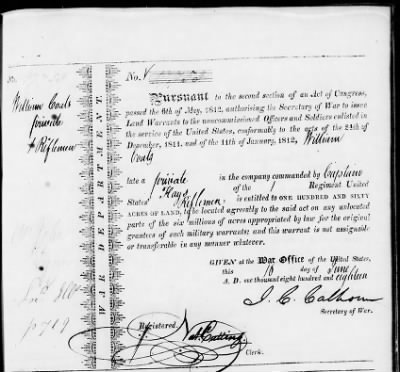 No.
William Coats
private
Riflemen
WAR DEPARTMENT
No.
Pursuant to the second section of an Act of Congress,
passed the 6th of May, 1812, authorising the Secretary of War to issue
Land Warrants to the noncommissioned Officers and Soldiers enlisted in
the service of the United States, conformably to the acts of the 24th of
December, 1811, and of the 11th of January, 1812, William
Coats
late a private in the company commanded by Captain
Hays of the 1 Regiment United
States' Riflemen is entitled to ONE HUNDRED AND SIXTY
ACRES OF LAND, to be located agreeably to the said act on any unlocated
part of the six millions of acres appropriated by law for the original
grantees of such military warrants; and this warrant is not assignable
or transferable in any manner whatever.
GIVEN at the War Office of the United States,
this 10 day of June
A. D. one thousand eight hundred and eighteen
J. C. Calhoun
Secretary of War.
Registered.
Clerk.
p 719